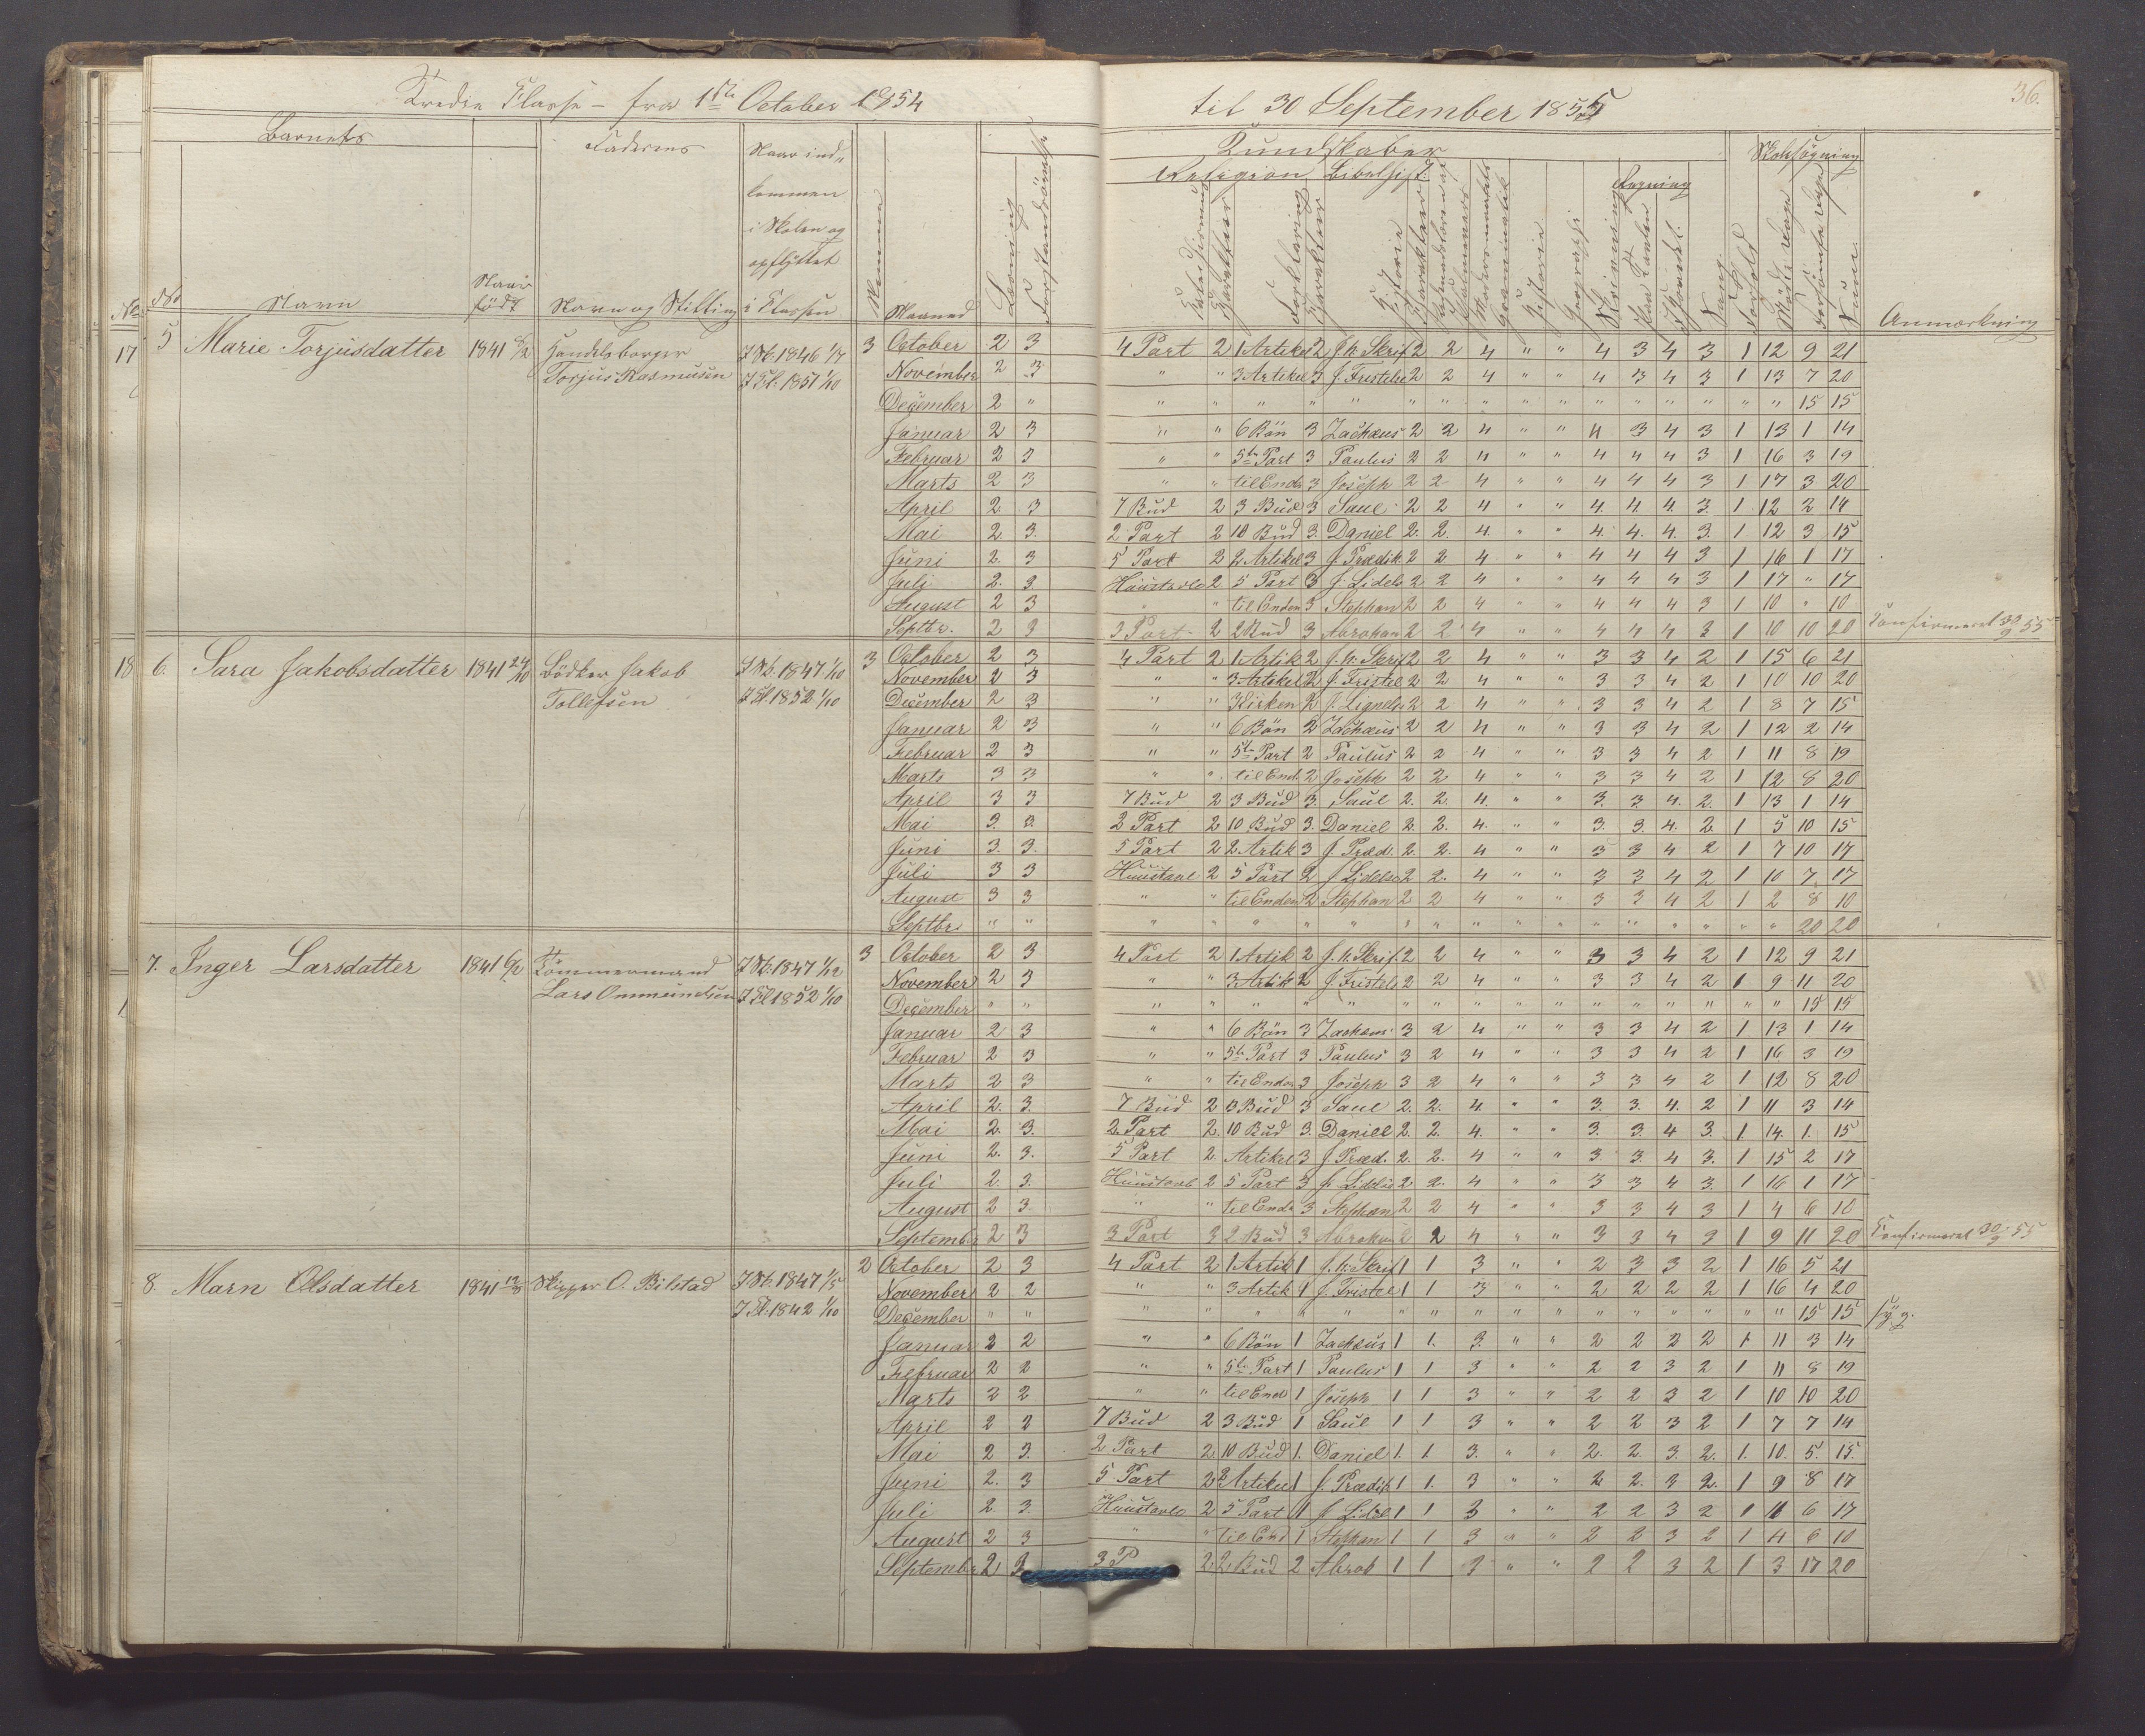 Tredie Classe – fra 1ste October 1854 til 30 September 1855
36.
Barnets Faderens Naar ind- kommen i Skolen og opflyttet i Classen Nemmme Maaned Læsning Forstandsövelse
Kundskaber Skolesögning
Religion Bibelhist. Regning
No Navn Naar födt Navn og Stilling
Karakteer Forklaring Karakteer Historie Karakteer Modersmaalets Grammatik Historie Geografi Skrivning Paa Tavlen I Hovedet Sang Forhold Mödte Dage Forsömte Dage Sum Anmærkning
17 5 Marie Torjusdatter 1841 Handelsborger Torjus Rasmusen I Sk. 1846 1/7 I Kl. 1851 1/10 3
October 2 3 4 Part 2 1 Artikel 2 J. h. Skrif 2 2 4 " " 4 3 4 3 1 12 9 21
November 2 3 " " 3 Artikel 3 J. Fristelse 2 2 4 " " 4 3 4 3 1 13 7 20
December 2 " " " " " " " " " " " " " " " " " 15 15
Januar 2 3 " " 6 Bön 3 Zachæus 2 2 4 " " 4 3 4 3 1 13 1 14
Februar 2 3 " " 5te Part 3 Paulus 2 2 4 " " 4 4 4 3 1 16 3 19
Marts 2 3 " " til Enden 3 Joseph 2 2 4 " " 4 4 4 3 1 17 3 20
April 2. 3 7 Bud 2 3 Bud 3 Saul 2 2 4 " " 4. 4 4. 3. 1 12 2 14
Mai 2. 3. 2 Part 2 10 Bud 3. Daniel 2. 2. 4. " " 4. 4. 4. 3. 1 12 3 15
Juni 2. 3 5 Part 2 2. Artikel 3 J. Prædik 2 2 4 " " 4 4 4 3 1 16 1 17
Juli 2. 3. Huustavle 2 5 Part 3 J. Lidels 2 2 4 " " 4 4 4 3 1 17 " 17
August 2 3 " " til Enden 3 Stephan 2 2 4 " " 4 4 4 3 1 10 " 10
Septbr. 2 3 3 Part 2 2 Bud 3 Abraham 2 2 4 " " 4 4 4 3 1 10 10 20 Confirmeret 30/9 55
18 6. Sara Jakobsdatter 1841 24/10 Bödker Jakob Tollefsen I Sk. 1847 1/10 I Kl. 1852 1/10 3
October 2 3 4 Part 2 1 Artik 2 J. h. Skrif 2 2 4 " " 3 3 4 2 1 15 6 21
November 2 3 " " 3 Artikel 2 J. Fristel 2 2 4 " " 3 3 4 2 1 10 10 20
December 2 3 " " Kirken 2 J. Lignels 2 2 4 " " 3 3 4 2 1 8 7 15
Januar 2 3 " " 6 Bön 2 Zachæus 2 2 4 " " 3 3 4 2 1 12 2 14
Februar 2 3 " " 5te Part 2 Paulus 2 2 4 " " 3 3 4 2 1 11 8 19
Marts 3 3 " " til End. 2 Joseph 2 2 4 " " 3 3 4 2 1 12 8 20
April 3 3 7 Bud 2 3 Bud 3. Saul 2. 2. 4. " " 3. 3. 4. 2. 1 13 1 14
Mai 3. 3. 2 Part 2 10 Bud 3. Daniel 2. 2. 4. " " 3. 3. 4. 2. 1 5 10 15
Juni 3. 3. 5 Part 2 2. Artik 3 J. Præd. 2. 2. 4 " " 3 3 4 2 1 7 10 17
Juli 3 3 Huustavl 2 5 Part 2 J Lidelse 2 2. 4 " " 3 3 4 2 1 10 7 17
August 3 3 " " til Enden 2 Stephan 2 2 4 " " 3 3 4 2 1 2 8 10
Septbr " " " " " " " " " " " " " " " " " " 20 20
7. Inger Larsdatter 1841 6/2 Tömmermand Lars Ommundsen I Sk. 1847 1/12 I Kl 1852 1/10 3
October 2 3 4 Part 2 1 Artik 2 J. h. Skrif. 2 2 4 " " 3 3 4 2 1 12 9 21
November 2 3 " " 3 Artik 2 J. Fristels 2 2 4 " " 3 3 4 2 1 9 11 20
December " " " " " " " " " " " " " " " " " " 15 15
Januar 2 3 " " 6 Bön 3 Zachæus 3 2 4 " " 3 3 4 2 1 13 1 14
Februar 2 3 " " 5te Part 3 Paulus 3 2 4 " " 3 3 4 2 1 16 3 19
Marts 2 3 " " til Enden 3 Joseph 3 2 4 " " 3 3 4 2 1 12 8 20
April 2. 3. 7 Bud 2 3 Bud 3 Saul 2. 2. 4. " " 3. 3. 4. 2 1 11 3 14
Mai 2. 3. 2. Part 2. 10 Bud 3. Daniel 2. 2. 4. " " 3. 3. 4 3. 1. 14. 1. 15
Juni 2. 3. 5 Part 2. Artikel 3 J. Præd. 2. 2. 4 " " 3 3. 4 3. 1 15 2 17
Juli 2. 3. Huustavle 2 5 Part 3 J. Lidelse 2 2. 4 " " 3 3 4 3. 1 16 1 17
August 2 3 " " til Ende 3 Stephan 2 2 4 " " 3 3 4 3 1 4 6 10
Septembr 2 3 3 Part 2 2 Bud 3 Abraham 2 2 4 " " 3 3 4 3 1 9 11 20 Confirmeret 30/9 55
8. Marn Olsdatter 1841 Skipper O. Bilstad I Sk. 1847 1/5 I Kl. 1842 1/10 2
October 2 3 4 Part 2 1 Artik 1 J. h. Skrif 1 1 3 " " 2 3 3 2 1 16 5 21
November 2 2 " " 3 Artik 1 J. Fristel 1 1 3 " " 2 2 2 2 1 16 4 20
December " " " " " " " " " " " " " " " " " " 15 15 syg.
Januar 2 2 " " 6 Bön 1 Zachæus 1 1. 3. " " 2 2 2 2 1 11 3 14
Februar 2 2 " " 5te Part 1 Paulus 1 1 3 " " 2 2 3 2 1 11 8 19
Marts 2 2 " " til End 1 Joseph 1 1 3 " " 2 2 3 2 1 10 10 20
April 2 2 7 Bud 2 3 Bud 1 Saul 1 1 3 " " 2 2 3 2 1 7 7 14
Mai 2 3. 2 Part 2. 10 Bud 1. Daniel 1. 1. 3. " " 2. 2. 3. 2. 1. 10. 5. 15.
Juni 2. 3 5 Part 2 2 Artikel 1 J. Prædik 1 1. 3 " " 2 2. 3 2. 1 9 8 17
Juli 2 3. Huustavle 2 5 Part 1 J Lidel 1 1 3 " " 2 2 3 2 1 11 6 17
August 2 3 " " til End 1 Stephan 1 1 3 " " 2 2 3 2 1 4 6 10
Septembr 2 3 3 P 2 2 Bud 2 Abrah 1 1 3 " " 2 2 3 2 1 3 17 20